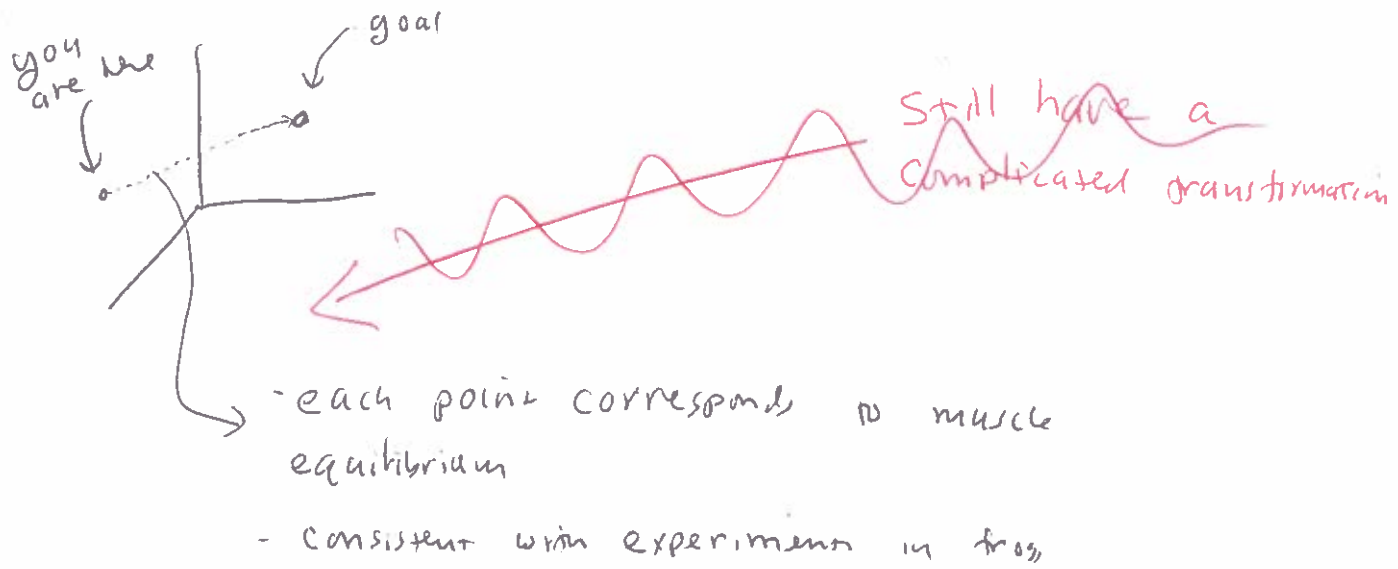 goal
you
are here
Still have a
complicated transformation
- each point corresponds to muscle
equilibrium
- consistent with experiment in frog